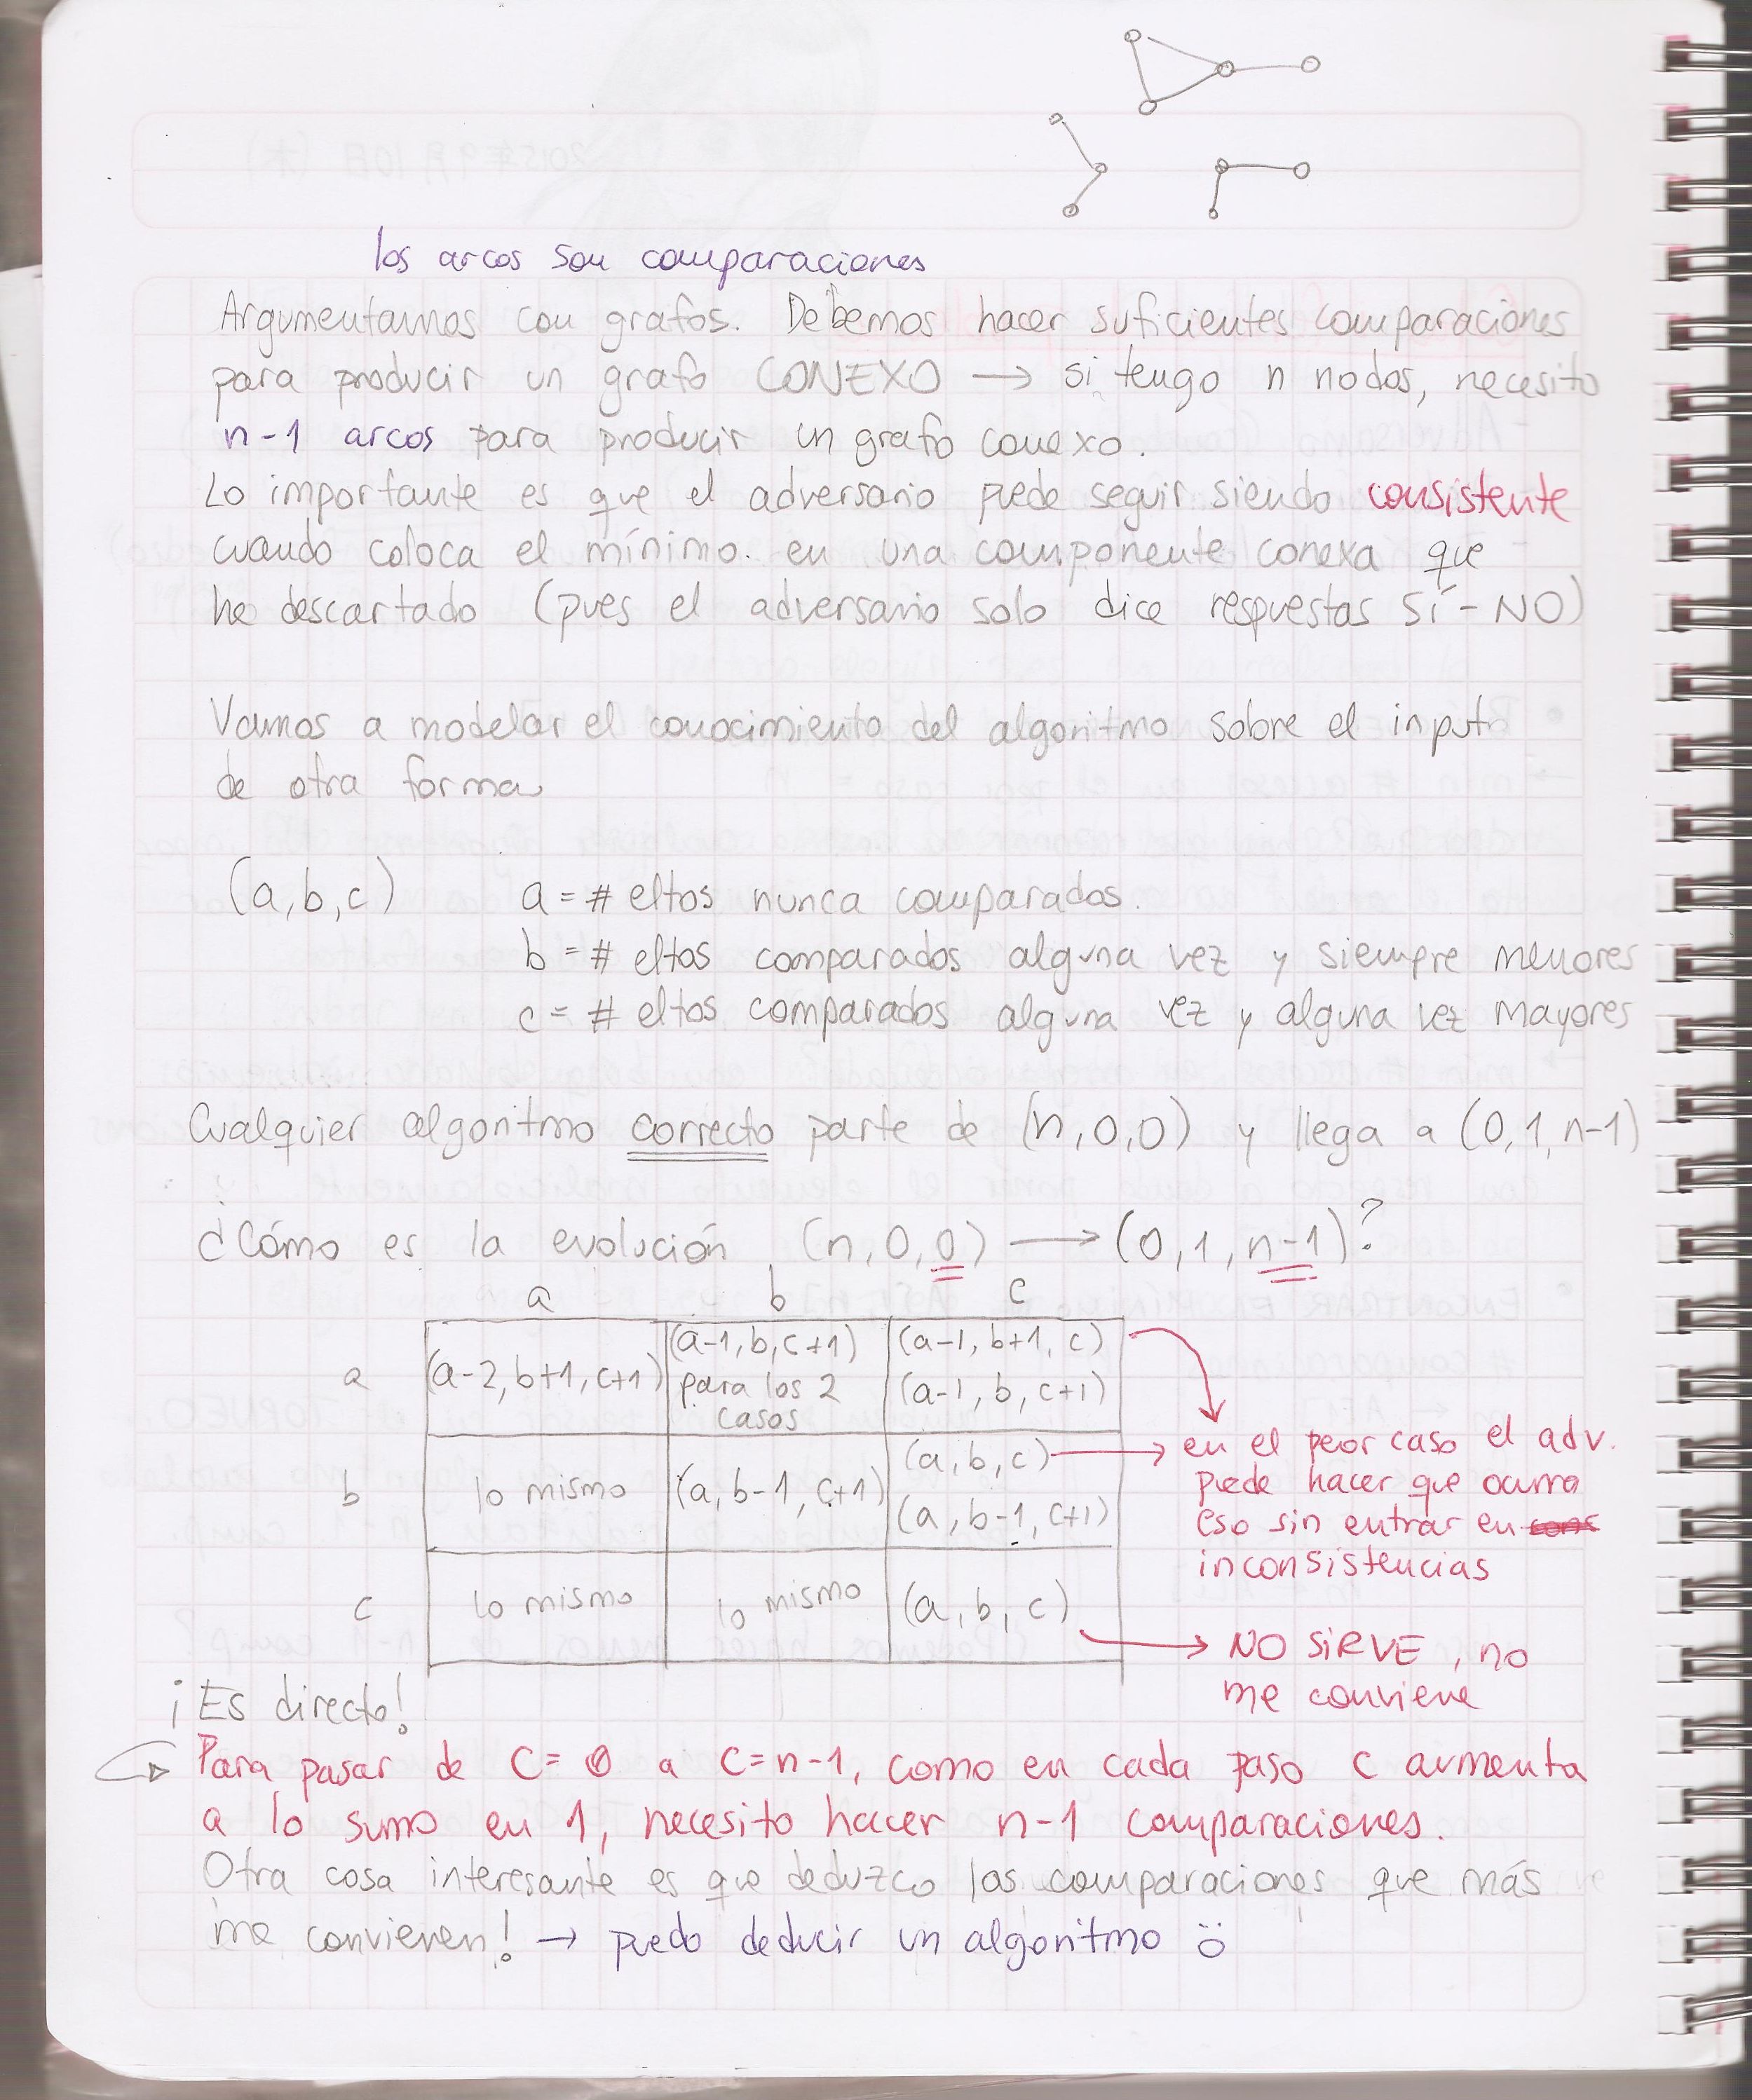 los arcos son comparaciones
Argumentamos con grafos. Debemos hacer suficientes comparaciones
para producir un grafo CONEXO → si tengo n nodos, necesito
n-1 arcos para producir un grafo conexo.
Lo importante es que el adversario puede seguir siendo consistente
cuando coloca el mínimo. en una componente conexa que
he descartado (pues el adversario solo dice respuestas SÍ-NO)
Vamos a modelar el conocimiento del algoritmo sobre el input
de otra forma
(a,b,c) a = # eltos nunca comparados.
b = # eltos comparados alguna vez y siempre menores
c = # eltos comparados alguna vez y alguna vez mayores
Cualquier algoritmo correcto parte de (n,0,0) y llega a (0,1,n-1)
¿Cómo es la evolución (n,0,0) → (0,1,n-1)?
a b c
a (a-2,b+1,c+1) (a-1,b,c+1) para los 2 casos (a-1,b+1,c) (a-1,b,c+1)
b lo mismo (a,b-1,c+1) (a,b,c) (a,b-1,c+1)
c lo mismo lo mismo (a,b,c)
→ en el peor caso el adv.
puede hacer que ocurra
eso sin entrar en
inconsistencias
→ NO SIRVE, no
me conviene
¡Es directo!
Para pasar de C=0 a C=n-1, como en cada paso C aumenta
a lo sumo en 1, necesito hacer n-1 comparaciones.
Otra cosa interesante es que deduzco las comparaciones que más
me convienen! → puedo deducir un algoritmo